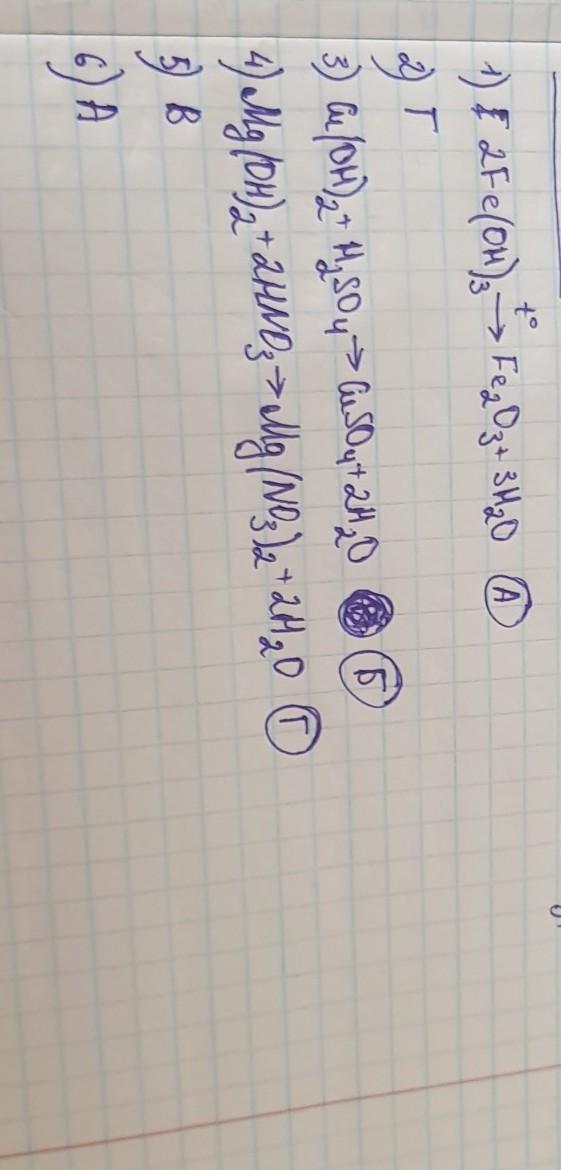 1) 2Fe(OH)₃ →t° Fe₂O₃ + 3H₂O А
2) Г
3) Cu(OH)₂ + H₂SO₄ → CuSO₄ + 2H₂O Б
4) Mg(OH)₂ + 2HNO₃ → Mg(NO₃)₂ + 2H₂O Г
5) В
6) А